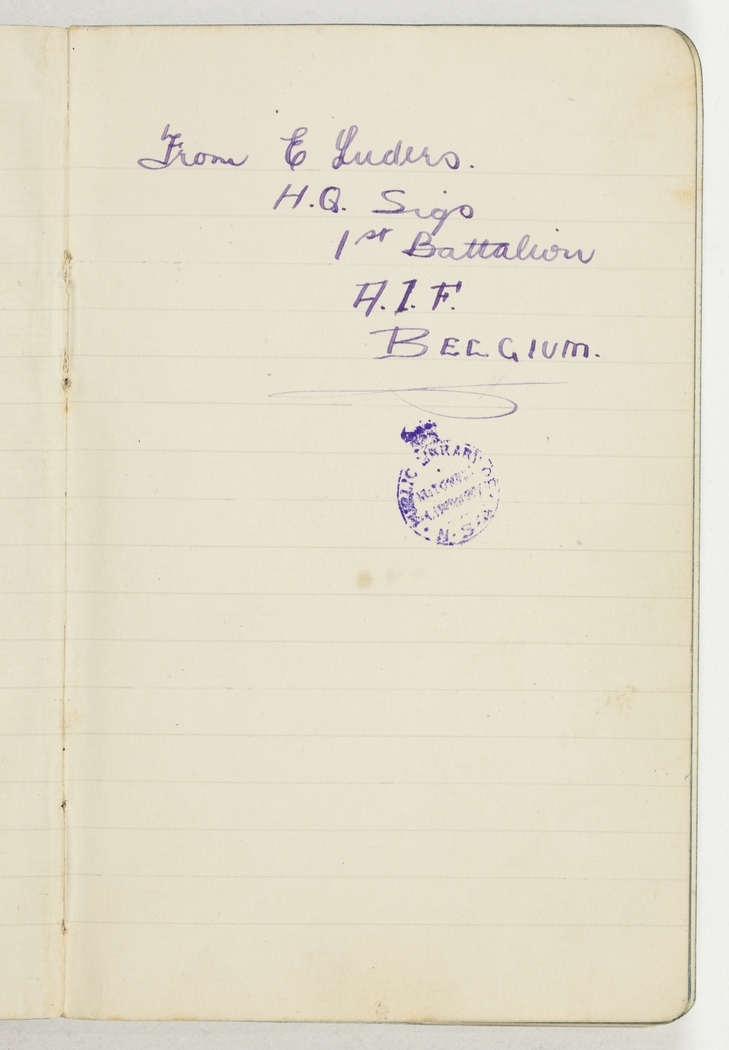 From E Luders.
H.Q. Sigs
1st Battalion
A.I.F.
BELGIUM.
PUBLIC LIBRARY OF N.S.W.
MITCHELL